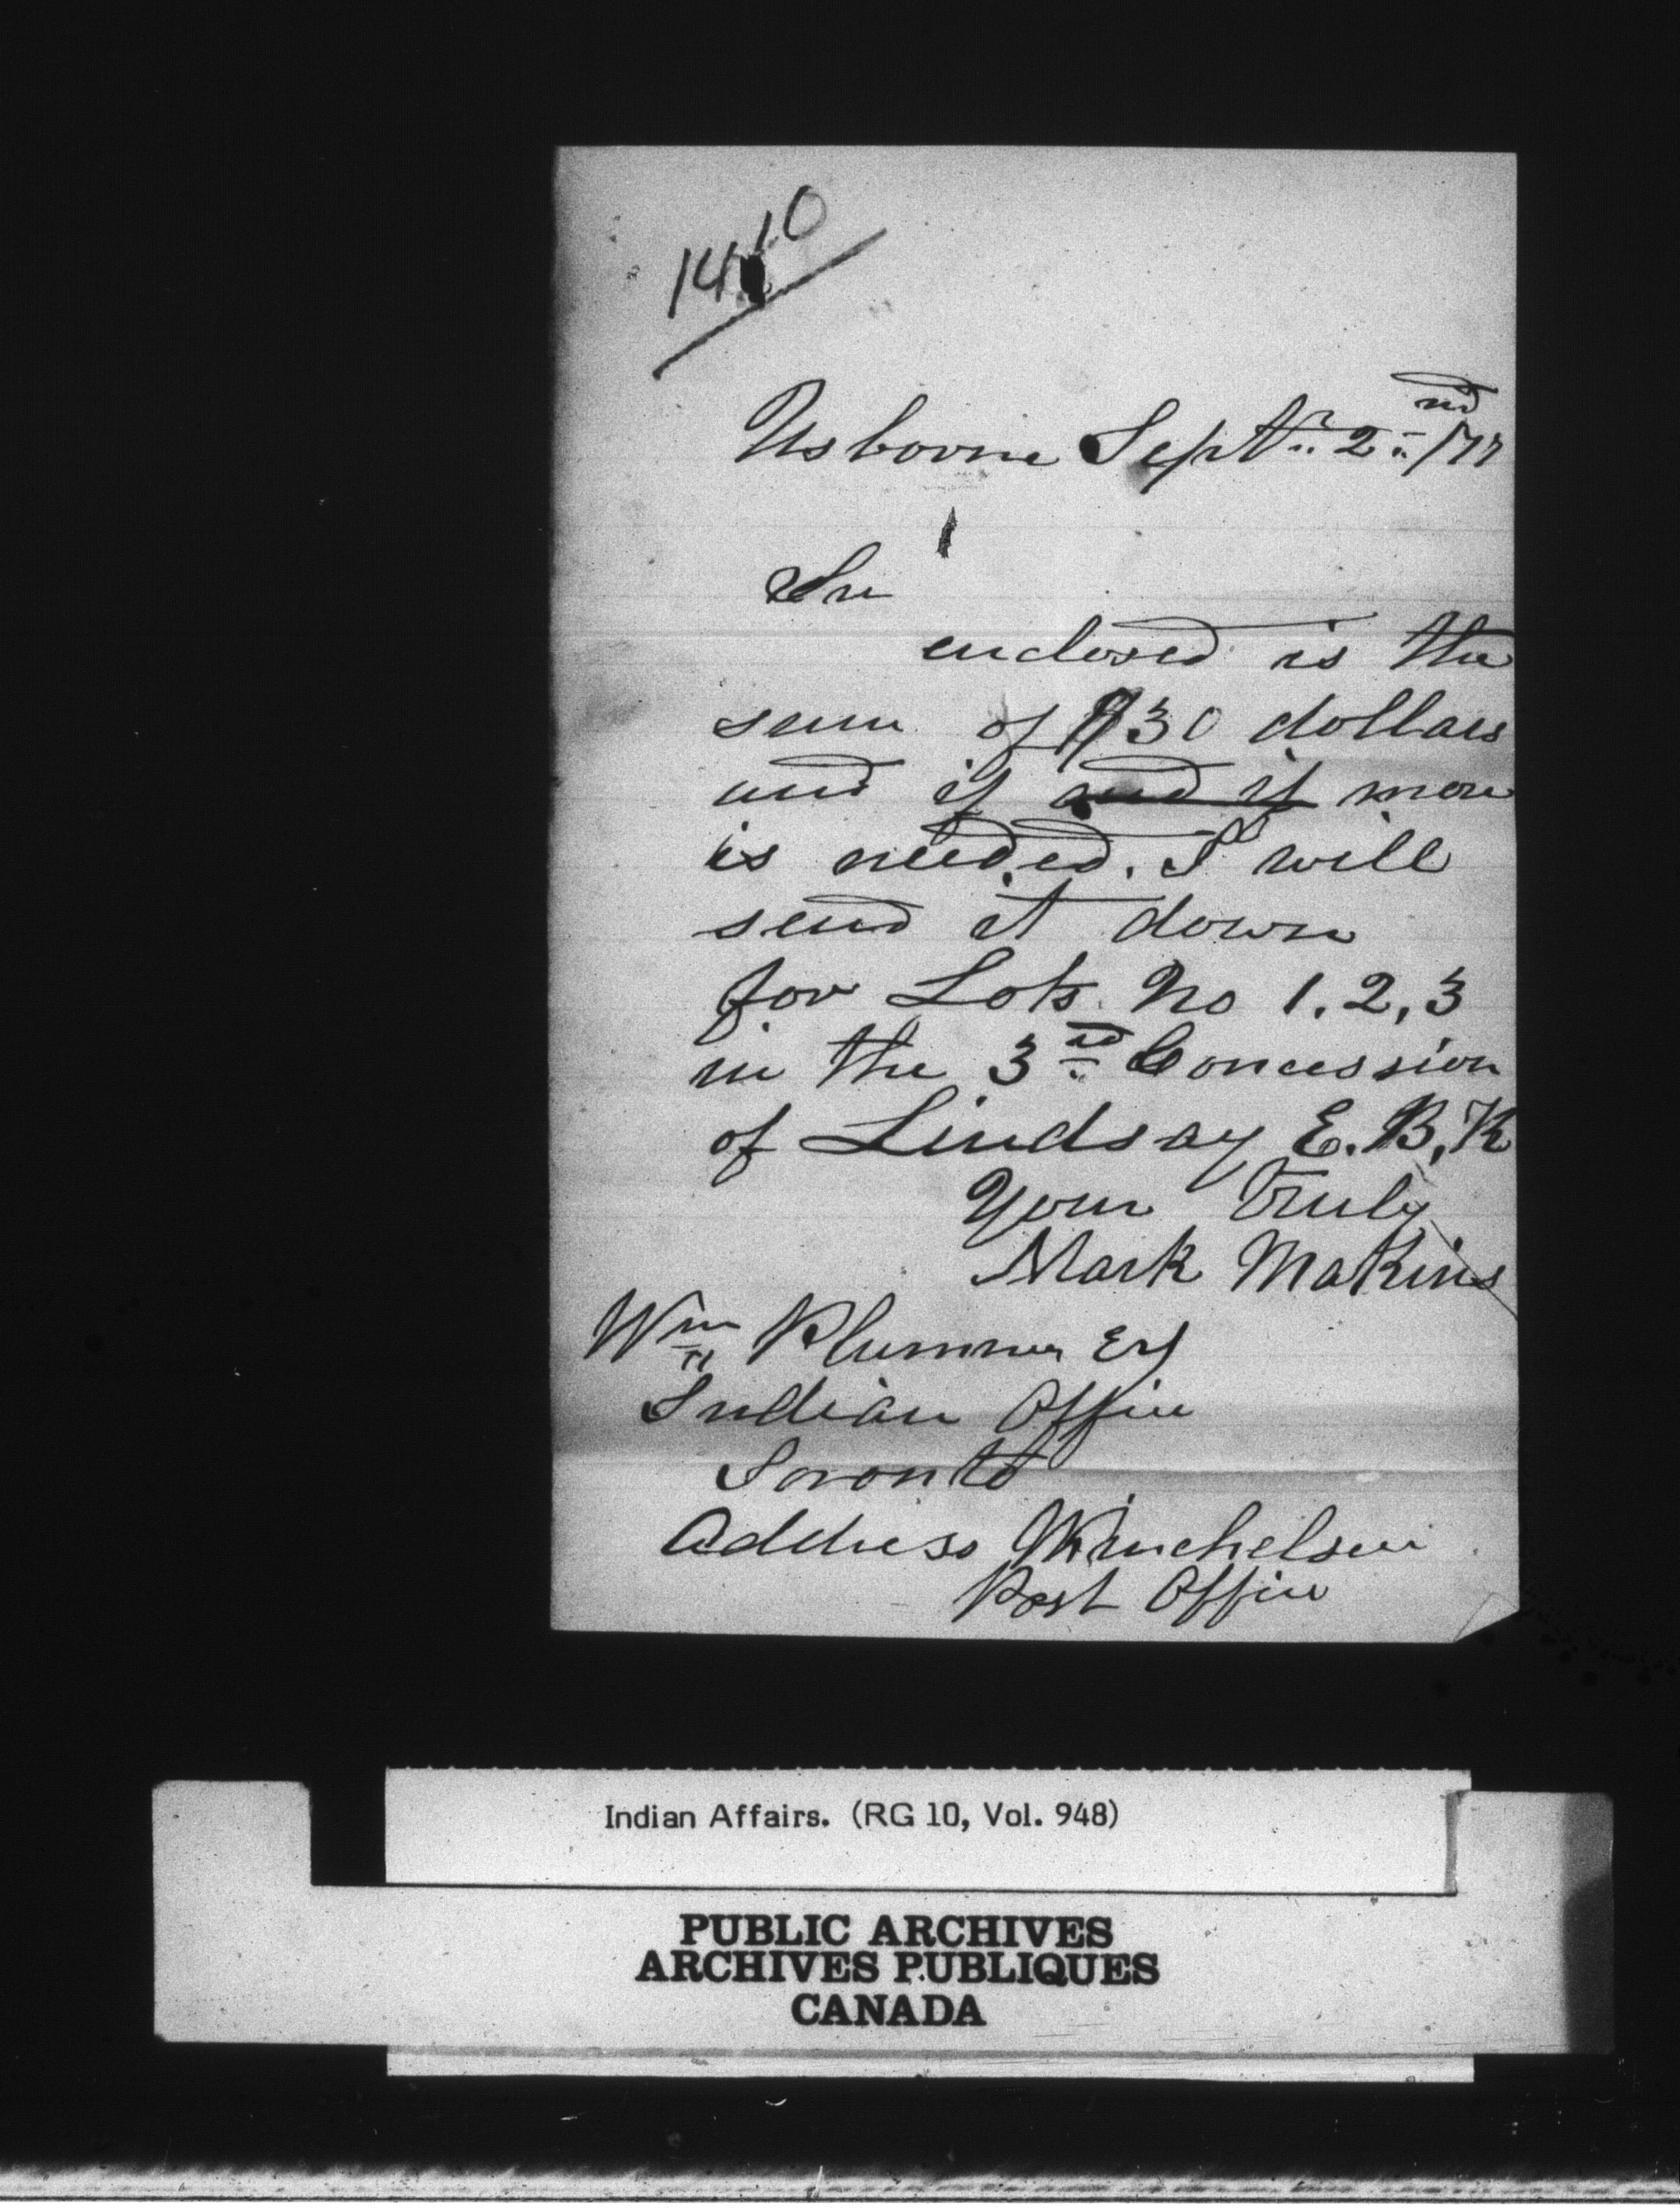 1410
Usborne Septr 2nd /77
Sir
enclosed is the
sum of $30 dollars
and if and if more
is needed. I will
send it down
for Lots No 1, 2, 3
in the 3rd Concession
of Lindsay E. B. R
Your Truly
Mark Makins
Wm Plummer Esq
Indian Office
Toronto
Address Winchelsea
Post Office
Indian Affairs. (RG 10, Vol. 948)
PUBLIC ARCHIVES
ARCHIVES PUBLIQUES
CANADA